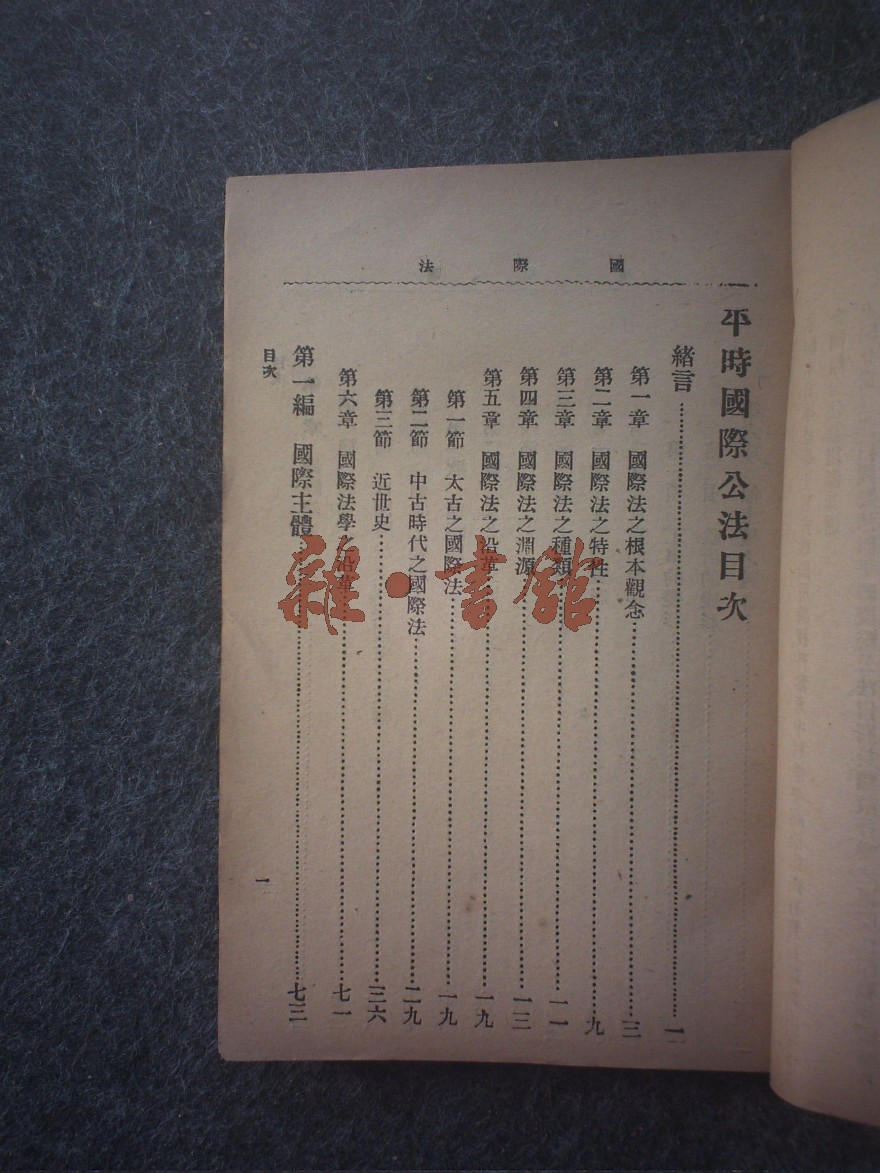 國際法
平時國際公法目次
緒言…………一
第一章　國際法之根本觀念…………三
第二章　國際法之特性…………九
第三章　國際法之種類…………一一
第四章　國際法之淵源…………一三
第五章　國際法之沿革…………一九
第一節　太古之國際法…………一九
第二節　中古時代之國際法…………二九
第三節　近世史…………三六
第六章　國際法學之沿革…………七一
第一編　國際主體…………七三
目次
一
雜·書館